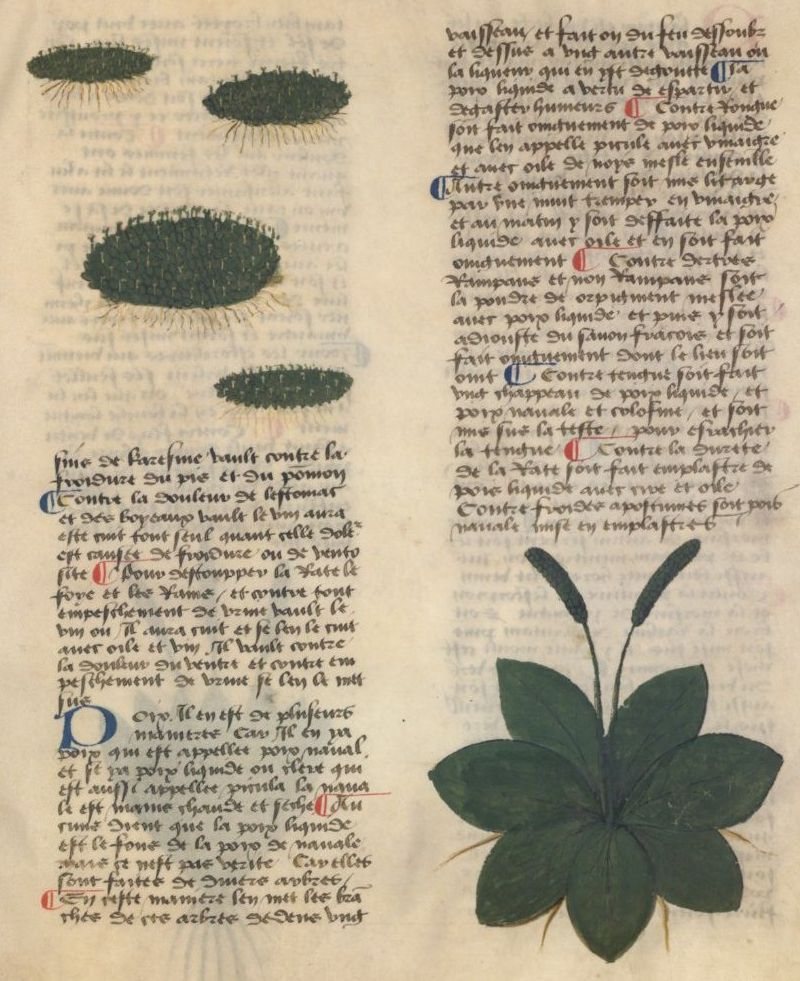 sins de karesme vault contre la
froidure du pis et du pomon
¶ Contre la douleur de lestomac
et des boyeaux vault le vin aura
este cuit tout seul quant celle dole
est causee de froidure ou de vento
site ¶ Pour destoupper la Rate le
foye et les Rains, et contre tout
empeschement de vrine vault le
vin ou Il aura cuit et se len le cuit
auec oile et vin Il vault contre
la douleur du ventre et contre em
peschement de vrine se len le met
sus
Poix. Il en est de pluseurs
manieres Car Il en ya
poix qui est appellee poix naual.
et se ya poix liquide ou clere qui
est aussi appellee picula la naua
le est mains chaude et seche ¶ Au
cuns dient que la poix liquide
est le fons de la poix de nauale
mais ce nest pas verite Car elles
sont faites de diuers arbres,
¶ En ceste maniere len met les brā
ches de ces arbres dedens vng
vaisseau, et fait on du feu dessoubz
et dessus a vng autre vaisseau ou
la liqueur qui en yst degoutte ¶ La
poix liquide a vertu de espartir et
degaster humeurs ¶ Contre Rongne
soit fait oinguement de poix liquide
que len appelle picule auec vinaigre
et auec oile de noys mesle ensemble
¶ Autre oinguement soit mis litarge
par vne nuit tremper en vinaigre,
et au matin y soit deffaite la poix
liquide auec oile et en soit fait
oinguement ¶ Contre dertres
Rampans et non Rampans soit
la poudre de orpigment meslee
auec poix liquide et puis y soit
adiouste du sauon fracois et soit
fait oinguement dont le lieu soit
oint ¶ Contre tengne soit fait
vng chappeau de poix liquide, et
poix nauale et colofine, et soit
mis sus la teste, pour esrachier
la tengne ¶ Contre la durete
de la Rate soit fait emplastre de
pois liquide auec cire et oile
Contre froides apostumes soit pois
nauale mise en emplastres